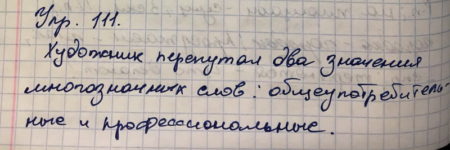 Упр. 111.
Художник перепутал два значения
многозначных слов: общеупотребитель-
ные и профессиональные.